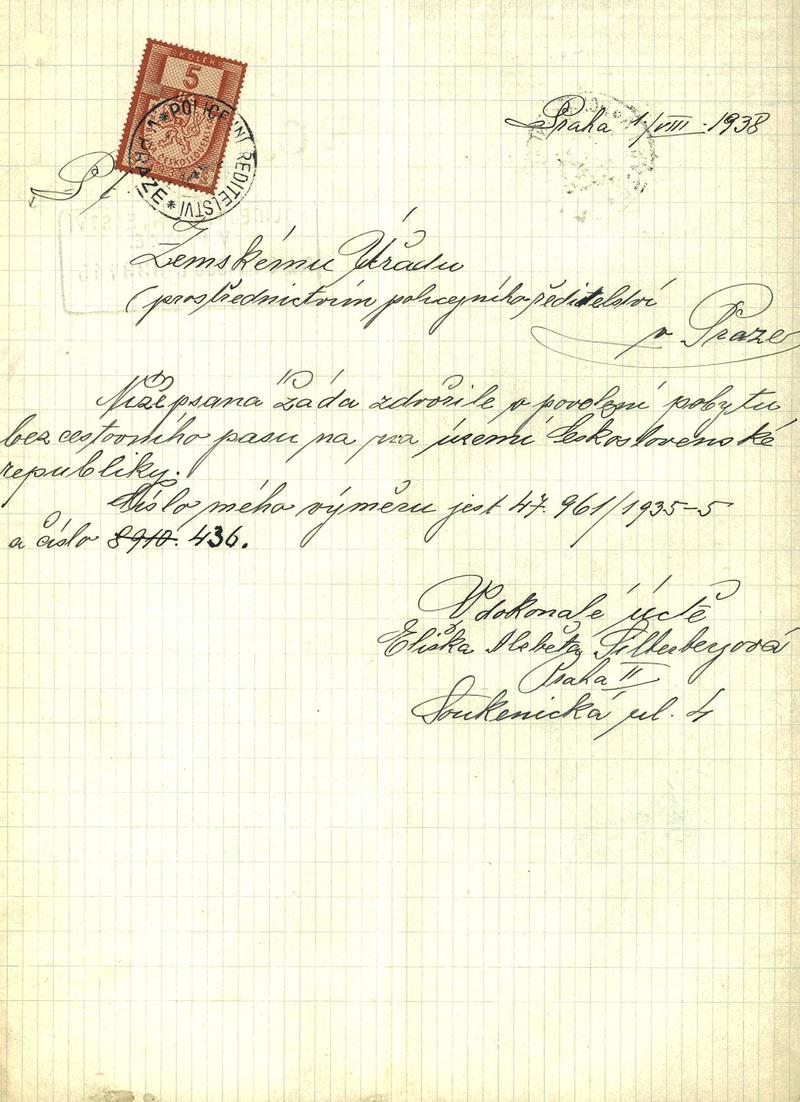 KOLEK
5
ČESKOSLOVENSKÁ
* POLICEJNÍ ŘEDITELSTVÍ * V PRAZE
Praha 1./VIII. 1938
Zemskému Úřadu
(prostřednictvím policejního ředitelství
v Praze
Nížepsaná žádá zdvořile o povolení pobytu
bez cestovního pasu na na území Československé
republiky.
Číslo mého výměru jest 47.961/1935-5
a číslo 8910. 436.
V dokonalé úctě
Eliška Alžběta Silberbergová
Praha II
Soukenická ul. 4